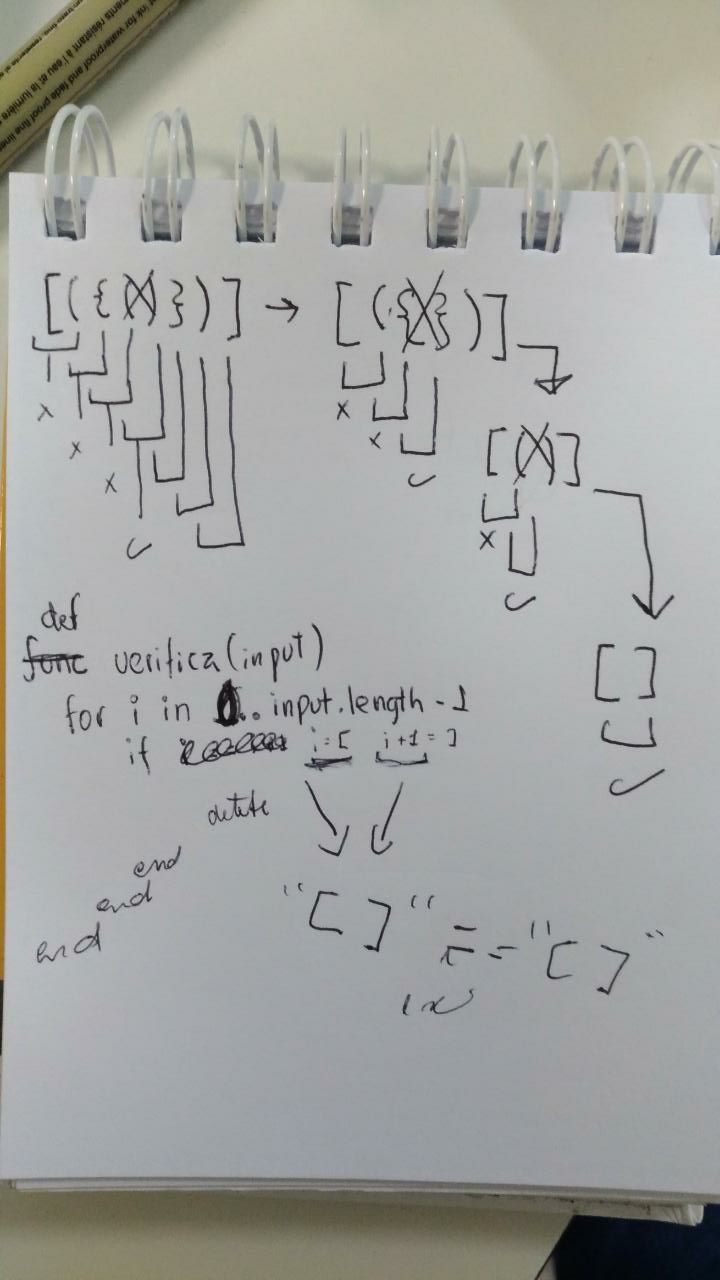 ink for waterproof and fade proof fine line
résistant à l'eau et la lumière
[({()})] → [({})]
x x x ✓
x x ✓
[()]
x ✓
[]
✓
def
func verifica(input)
for i in 0.. input.length - 1
if i = [ i+1 = ]
delete
end
end
end
"[ ]" == "[ ]"